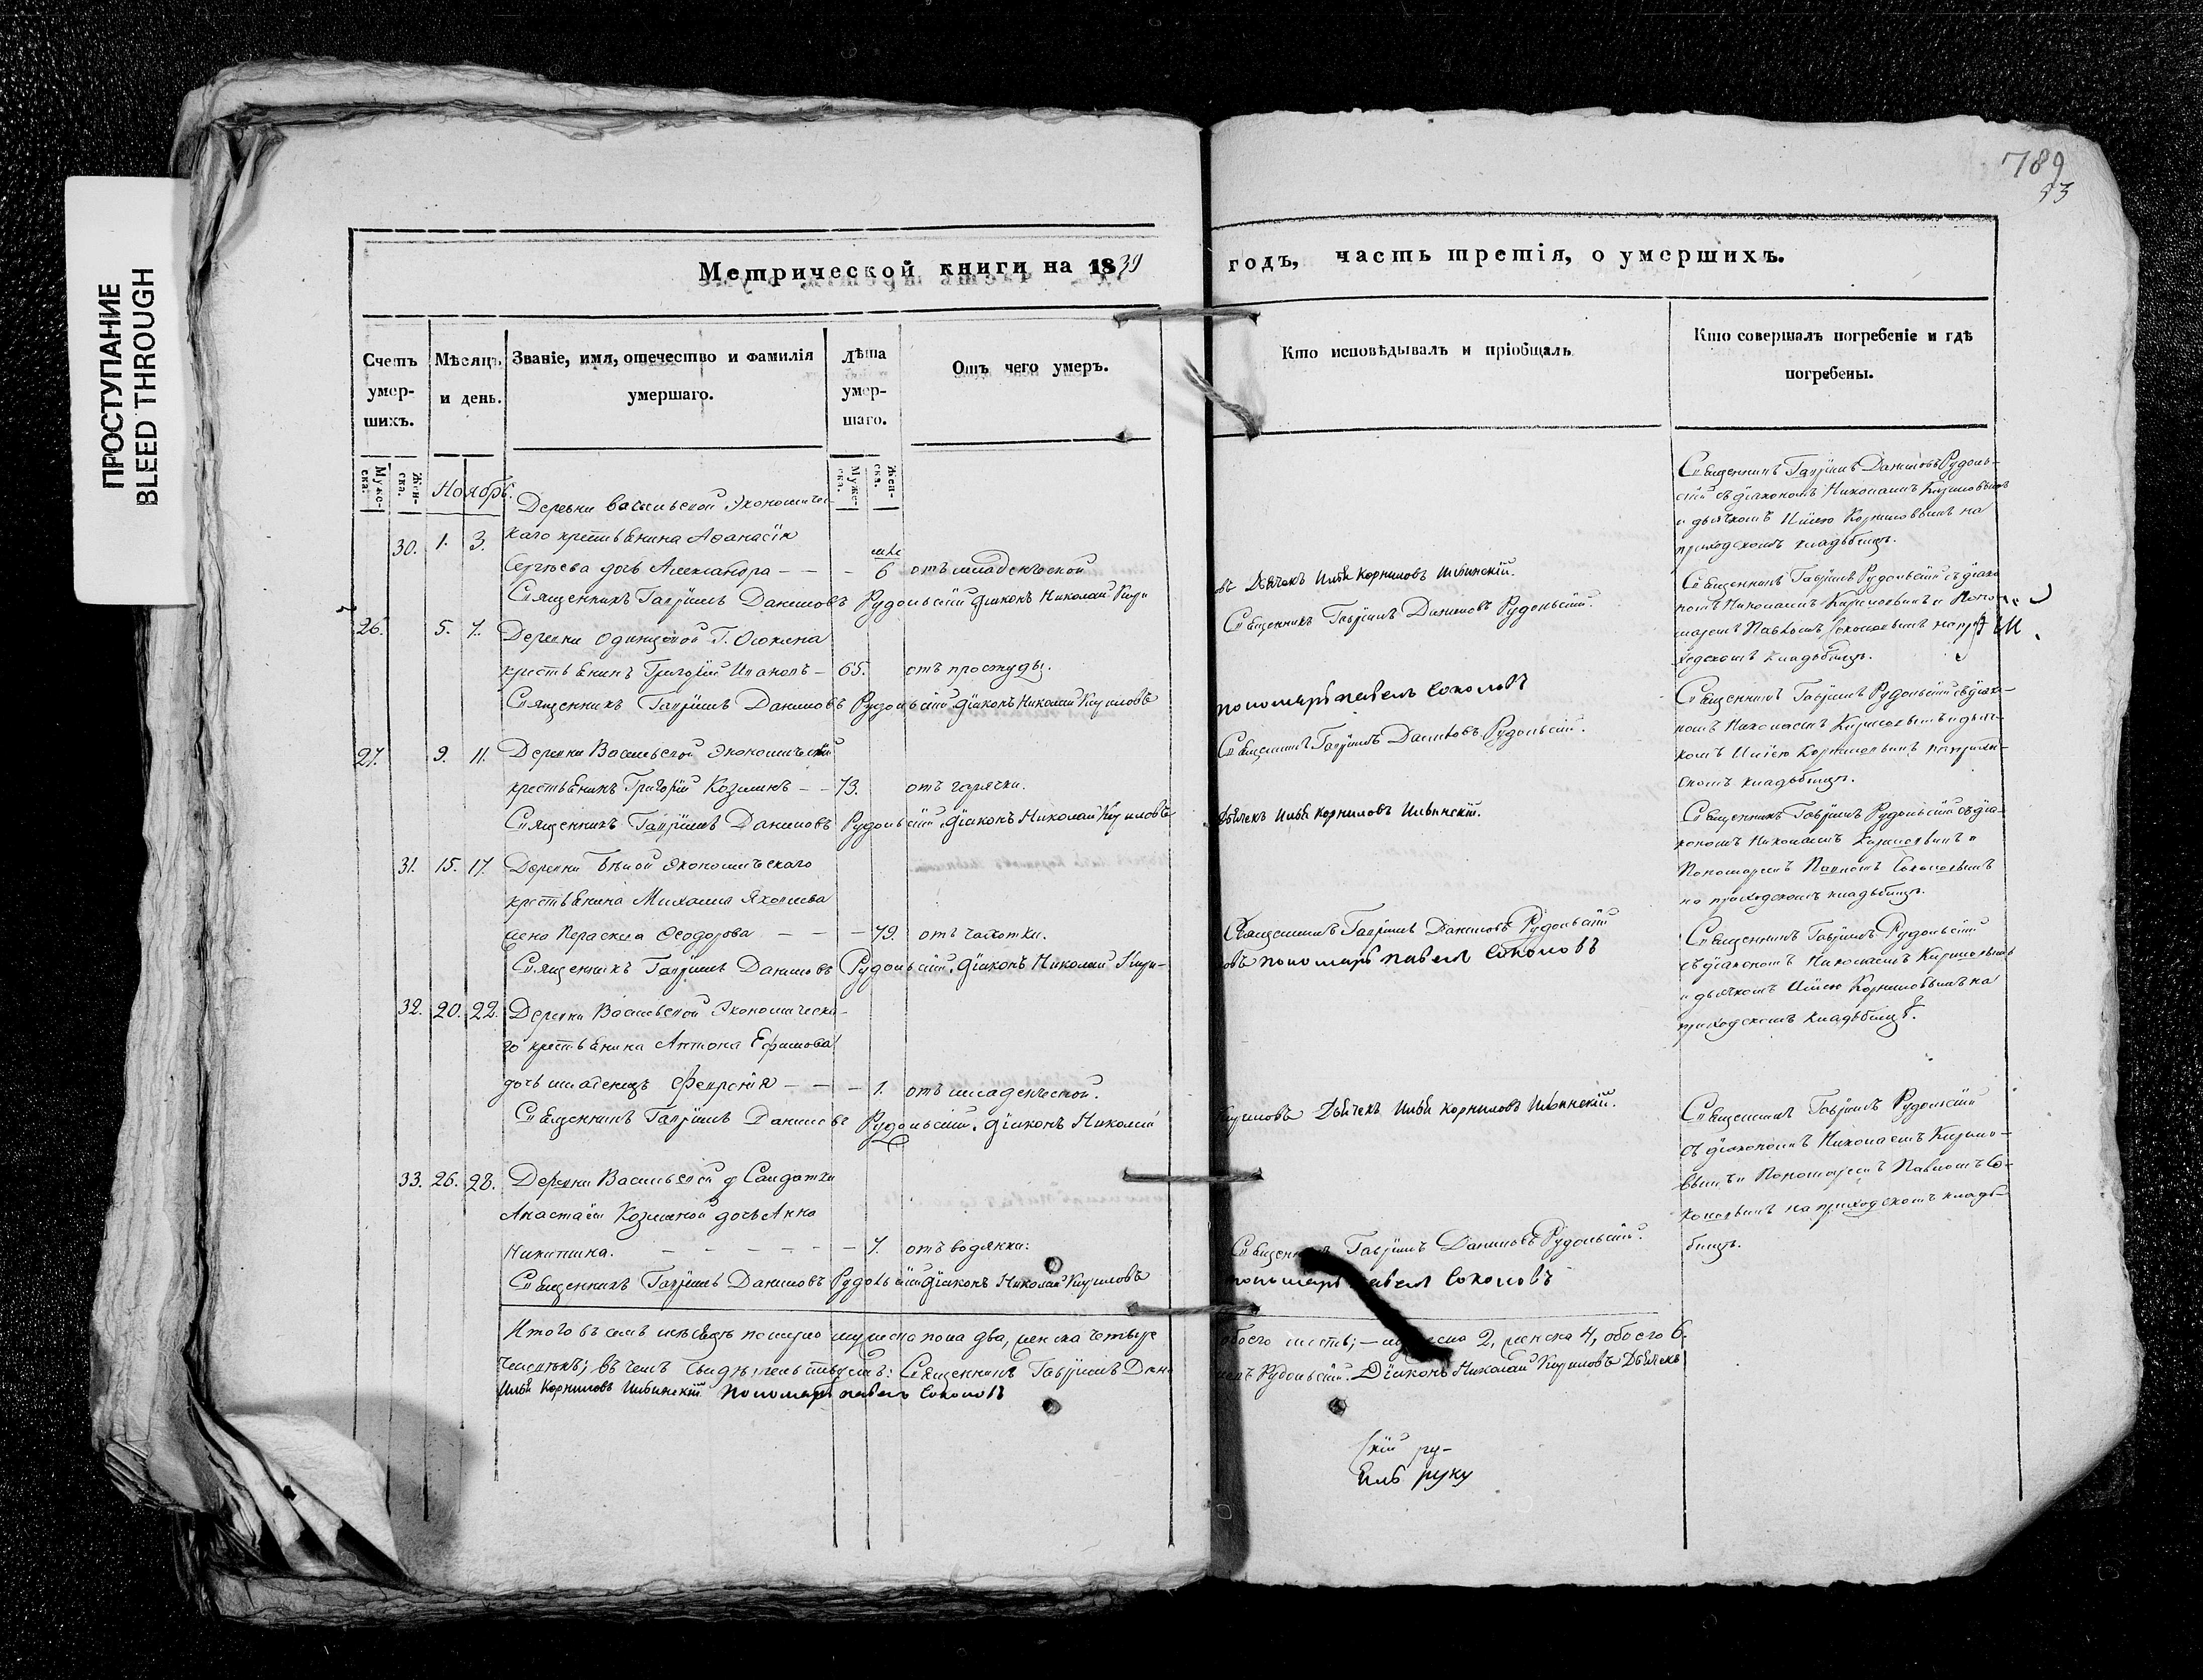 ПРОСТУПАНИЕ
BLEED THROUGH
789
53
Метрической книги на 1839
годъ, часть третія, о умершихъ.
Счетъ умер-шихъ.
Мѣсяцъ и день.
Званіе, имя, отечество и фамилія умершаго.
Лѣта умер-шаго.
Отъ чего умеръ.
Кто исповѣдывалъ и пріобщалъ
Кто совершалъ погребеніе и гдѣ погребены.
Муже-ска.
Жен-ска.
Муже-ска.
Жен-ска.
Ноябрь.
Деревни Васильевской Экономичес
каго крестьянина Аѳанасія
30. 1. 3.
Сергѣева дочь Александра — — — 6 отъ младенческой
Священникъ Гавріилъ Даниловъ Рудольскій Діаконъ Николай Кири
овъ Дьячекъ Илья Корниловъ Ильинскій.
Священникъ Гавріилъ Даниловъ Рудоль-
скій съ діакономъ Николаемъ Кириловымъ
и дьячкомъ Ильею Корниловымъ на
приходскомъ кладбищѣ.
26. 5. 7. Деревни Одинцовой Г.
крестьянинъ Григорій Ивановъ — 65. отъ простуды.
Священникъ Гавріилъ Даниловъ Рудольскій Діаконъ Николай Кириловъ
Священникъ Гавріилъ Даниловъ Рудольскій.
пономарь Павелъ Соколовъ
Священникъ Гавріилъ Рудольскій съ діако
номъ Николаемъ Кириловымъ и Поно
маремъ Павломъ Соколовымъ на при
ходскомъ кладбищѣ.
27. 9. 11. Деревни Васильевской Экономическій
крестьянинъ Григорій Козминъ — — 73. отъ горячки.
Священникъ Гавріилъ Даниловъ Рудольскій Діаконъ Николай Кириловъ
Священникъ Гавріилъ Даниловъ Рудольскій.
Дьячекъ Илья Корниловъ Ильинскій.
Священникъ Гавріилъ Рудольскій съ діако-
номъ Николаемъ Кириловымъ и дьяч-
комъ Ильею Корниловымъ на приход-
скомъ кладбищѣ.
31. 15. 17. Деревни Бѣлой Экономическаго
крестьянина Михаила Яковлева
жена Параскева Ѳеодорова — — — 79. отъ чахотки.
Священникъ Гавріилъ Даниловъ Рудольскій. Діаконъ Николай Кири-
Священникъ Гавріилъ Даниловъ Рудольскій
овъ пономарь Павелъ Соколовъ
Священникъ Гавріилъ Рудольскій съ діа-
кономъ Николаемъ Кириловымъ и
Пономаремъ Павломъ Соколовымъ
на приходскомъ кладбищѣ.
32. 20. 22. Деревни Васильевской Экономическа-
го крестьянина Антона Ефимова
дочь младенецъ Февронія — — — 1. отъ младенческой.
Священникъ Гавріилъ Даниловъ Рудольскій. Діаконъ Николай
Кириловъ Дьячекъ Илья Корниловъ Ильинскій.
Священникъ Гавріилъ Рудольскій
съ діакономъ Николаемъ Кириловымъ
и дьячкомъ Ильею Корниловымъ на
приходскомъ кладбищѣ.
33. 26. 28. Деревни Васильевской у Салдатки
Анастасіи Козминой дочь Анна
Никитина. — — — — — — 7. отъ водянки:
Священникъ Гавріилъ Даниловъ Рудольскій Діаконъ Николай Кириловъ
Священникъ Гавріилъ Даниловъ Рудольскій.
пономарь Павелъ Соколовъ
Священникъ Гавріилъ Рудольскій
съ діакономъ Николаемъ Кирило-
вымъ и Пономаремъ Павломъ Со-
коловымъ на приходскомъ кладб-
бищѣ.
Итого въ семъ мѣсяцѣ померло мужеска пола два, женска четыре
обоего шесть; — мужеска 2, женска 4, обоего 6.
человѣкъ; въ чемъ свидѣтельствуемъ: Священникъ Гавріилъ Дани
ловъ Рудольскій. Діаконъ Николай Кириловъ Дьячекъ
Илья Корниловъ Ильинскій Пономарь Павелъ Соколовъ
скій ру-
руку